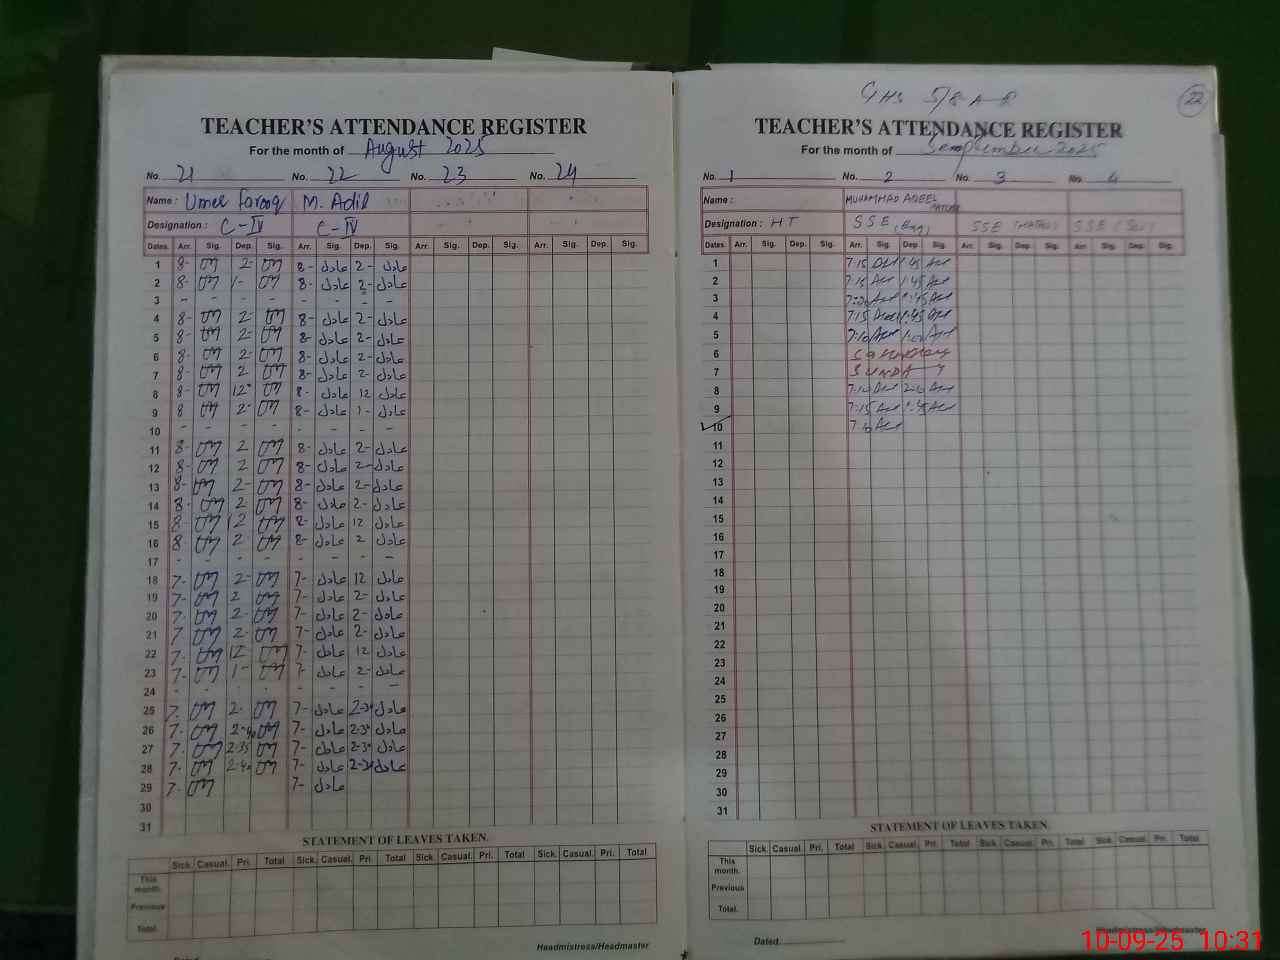 TEACHER'S ATTENDANCE REGISTER
For the month of August 2025
No. 21 No. 22 No. 23 No. 24
Name : Umer Farooq M. Adil
Designation : C-IV C-IV
Dates. Arr. Sig. Dep. Sig. Arr. Sig. Dep. Sig. Arr. Sig. Dep. Sig. Arr. Sig. Dep. Sig.
1 8- 2- 8- عادل 2- عادل
2 8- 1- 8- عادل 2- عادل
3 - - - - - - - -
4 8- 2- 8- عادل 2- عادل
5 8- 2- 8- عادل 2- عادل
6 8- 2- 8- عادل 2- عادل
7 8- 2 8- عادل 2- عادل
8 8- 12- 8- عادل 12 عادل
9 8 2- 8- عادل 1- عادل
10 - - - - - - - -
11 8- 2 8- عادل 2- عادل
12 8- 2 8- عادل 2- عادل
13 8- 2- 8- عادل 2- عادل
14 8- 2 8- عادل 2- عادل
15 8- 12 8- عادل 12 عادل
16 8- 2 8- عادل 2 عادل
17 - - - - - - - -
18 7- 2- 7- عادل 12 عادل
19 7- 2 7- عادل 2- عادل
20 7- 2- 7- عادل 2- عادل
21 7- 2- 7- عادل 2- عادل
22 7- 12- 7- عادل 12 عادل
23 7- 1- 7- عادل 2- عادل
24 - - - - - - - -
25 7- 2- 7- عادل 2-30 عادل
26 7- 7- عادل 2-30 عادل
27 7- 2-35 7- عادل 2-30 عادل
28 7- 2-40 7- عادل 2-30 عادل
29 7- 7- عادل
30
31
STATEMENT OF LEAVES TAKEN.
Sick. Casual. Pri. Total Sick. Casual. Pri. Total Sick. Casual. Pri. Total Sick. Casual. Pri. Total
This month.
Previous
Total.
Headmistress/Headmaster
GHS 5/8 A-R
22
TEACHER'S ATTENDANCE REGISTER
For the month of September 2025
No. 1 No. 2 No. 3 No. 4
Name : MUHAMMAD AQEEL
Designation : HT SSE (Eng) SSE (MATHS) SSE (Sci)
Dates. Arr. Sig. Dep. Sig. Arr. Sig. Dep. Sig. Arr. Sig. Dep. Sig. Arr. Sig. Dep. Sig.
1 7:15 1:45
2 7:15 1:45
3 7:20 1:45
4 7:15 1:45
5 7:10 1:00
6
7 SUNDAY
8 7:10
9 7:15 1:45
10
11
12
13
14
15
16
17
18
19
20
21
22
23
24
25
26
27
28
29
30
31
STATEMENT OF LEAVES TAKEN.
Sick. Casual. Pri. Total Sick. Casual. Pri. Total Sick. Casual. Pri. Total Sick. Casual. Pri. Total
This month.
Previous
Total.
Headmistress/Headmaster
Dated
10-09-25 10:31